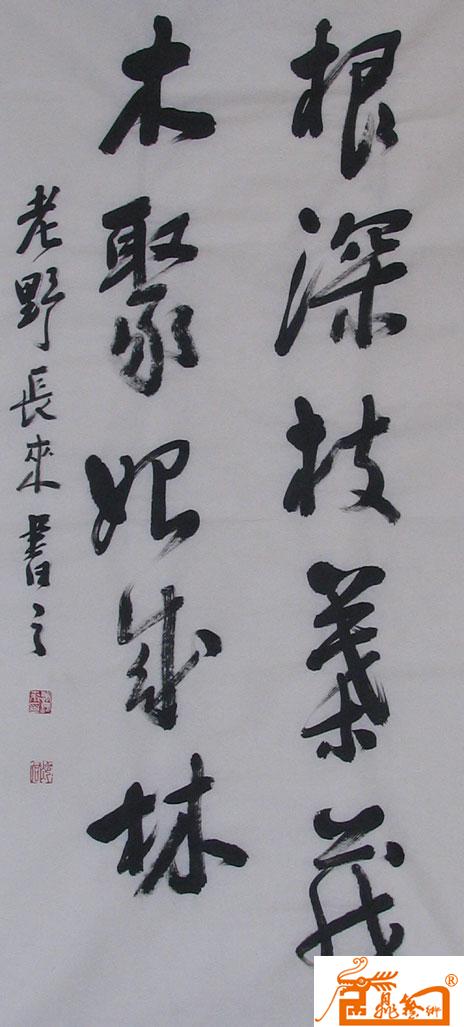 根深枝葉茂
木聚始成林
老野長來書之